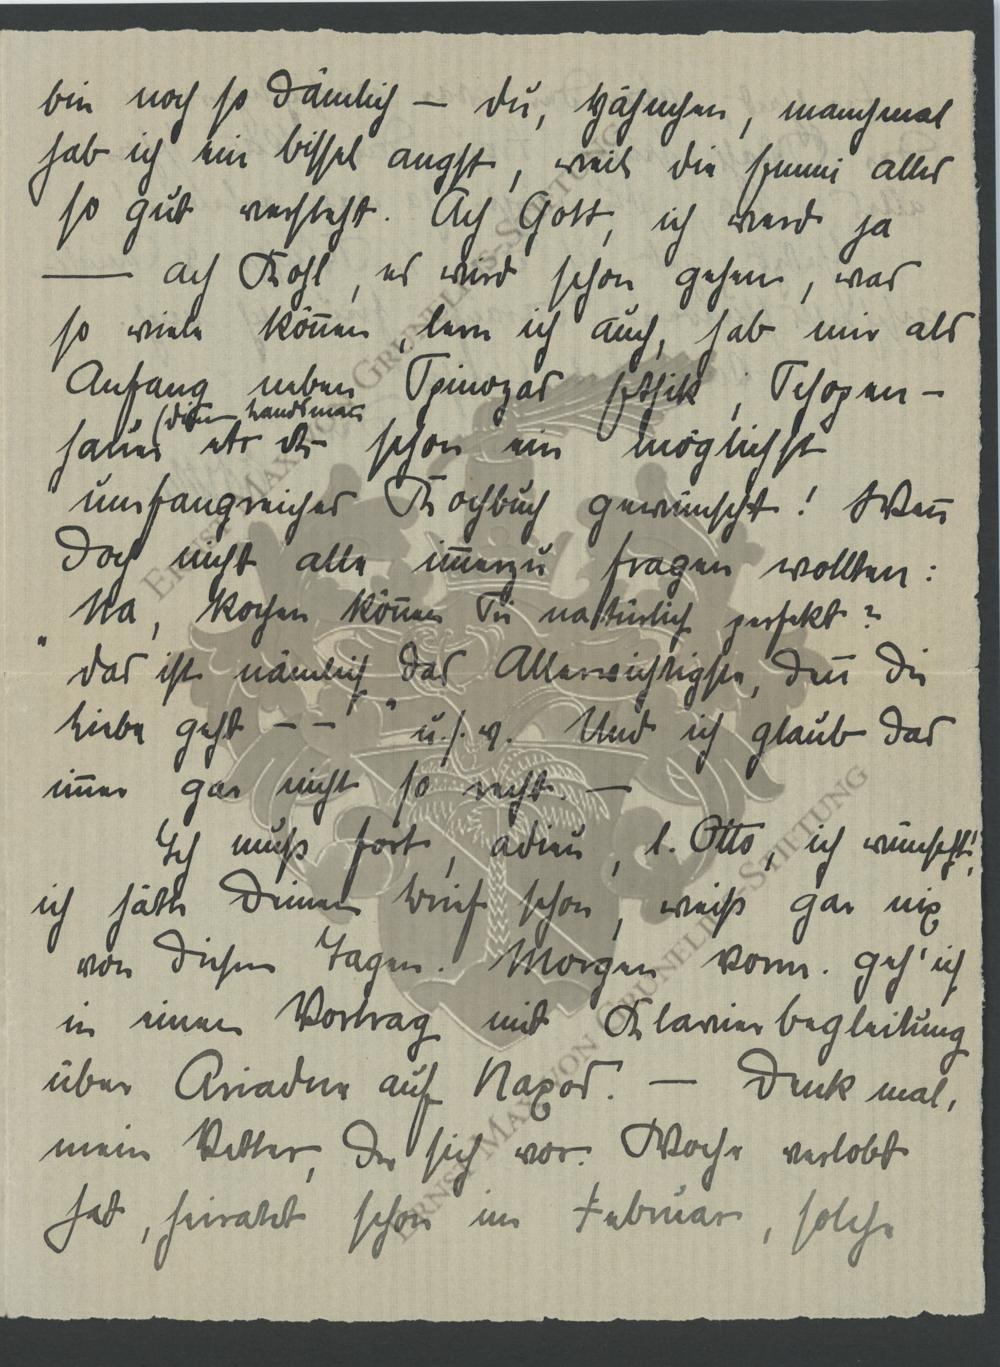 bin noch so dämlich — du, Hähnchen, manchmal
hab ich ein bissel angst, weil die Emmi alles
so gut versteht. Ach Gott, ich werd ja
—— ach Kohl, es wird schon gehen, was
so viele können, lern ich auch, hab mir als
Anfang neben Spinozas Ethik, Schopen-
(dein Landsmann
hauer etc schon ein möglichst
umfangreiches Kochbuch gewünscht! Wenn
doch nicht alle immerzu fragen wollten:
"Na, kochen können Sie natürlich perfekt?
das ist nämlich das Allerwichtigste, denn die
Liebe geht — —" u.s.w. Und ich glaub das
immer gar nicht so recht. —
Ich muß fort, adieu, l. Otto, ich wünscht!,
ich hätte Deinen Brief schon, weiß gar nix
von diesen Tagen. Morgen vorm. geh' ich
in einen Vortrag mit Klavierbegleitung
über Ariadne auf Naxos. — Denk mal,
mein Vetter, der sich vor. Woche verlobt
hat, heiratet schon im Februar, solche
ERNST MAX VON GRUNELIUS-STIFTUNG
ERNST MAX VON GRUNELIUS-STIFTUNG